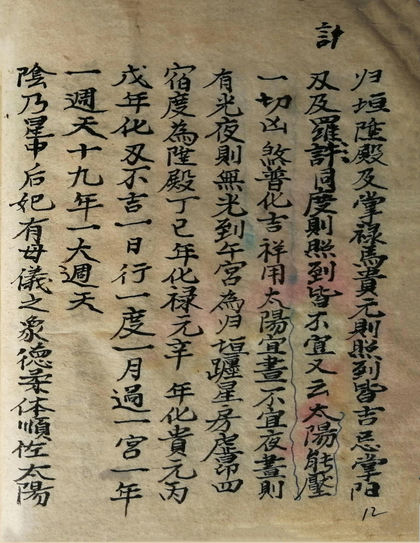 計
归垣陞殿及掌禄馬貴元則照到皆吉忌掌阳
刃及羅計同度則照到皆不宜又云太陽能壓
一切凶煞普化吉祥用太陽宜晝不宜夜晝則
有光夜則無光到午宮為归垣躔星房虚昴四
宿度為陞殿丁巳年化禄元辛 年化貴元丙
戊年化刃不吉一日行一度一月過一宮一年
一週天十九年一大週天
陰乃星中后妃有母儀之象德柔体順佐太陽
12